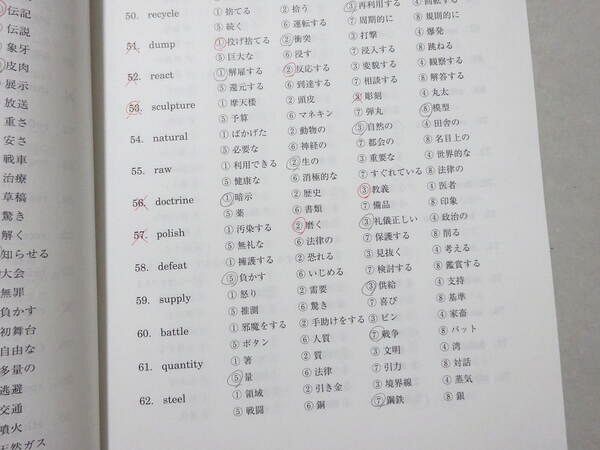 伝記
伝説
象牙
皮肉
展示
放送
重さ
安さ
戦車
治療
草稿
驚き
解く
知らせる
大会
無罪
負かす
初舞台
自由な
多量の
逃避
交通
噴火
天然ガス
50. recycle ①捨てる ②拾う ③再利用する ④回転する
⑤続く ⑥運転する ⑦周期的に ⑧規則的に
51. dump ①投げ捨てる ②衝突 ③打撃 ④爆発
⑤巨大な ⑥浸す ⑦浸入する ⑧跳ねる
52. react ①解雇する ②反応する ③変貌する ④観察する
⑤還元する ⑥到達する ⑦相談する ⑧解答する
53. sculpture ①摩天楼 ②頭皮 ③彫刻 ④丸太
⑤予算 ⑥マネキン ⑦弾丸 ⑧模型
54. natural ①ばかげた ②動物の ③自然の ④田舎の
⑤必要な ⑥神経の ⑦都会の ⑧名目上の
55. raw ①利用できる ②生の ③重要な ④世界的な
⑤健康な ⑥消極的な ⑦すぐれている ⑧法律の
56. doctrine ①暗示 ②歴史 ③教義 ④医者
⑤薬 ⑥書類 ⑦備品 ⑧印象
57. polish ①汚染する ②磨く ③礼儀正しい ④政治の
⑤無礼な ⑥法律の ⑦保護する ⑧削る
58. defeat ①擁護する ②恐れる ③見抜く ④考える
⑤負かす ⑥いじめる ⑦検討する ⑧鑑賞する
59. supply ①怒り ②需要 ③供給 ④支持
⑤推測 ⑥驚き ⑦喜び ⑧基準
60. battle ①邪魔をする ②手助けをする ③ピン ④家畜
⑤ボタン ⑥人質 ⑦戦争 ⑧バット
61. quantity ①著 ②質 ③文明 ④湾
⑤量 ⑥法律 ⑦引力 ⑧対話
62. steel ①領域 ②引き金 ③境界線 ④蒸気
⑤戦闘 ⑥銅 ⑦鋼鉄 ⑧銀